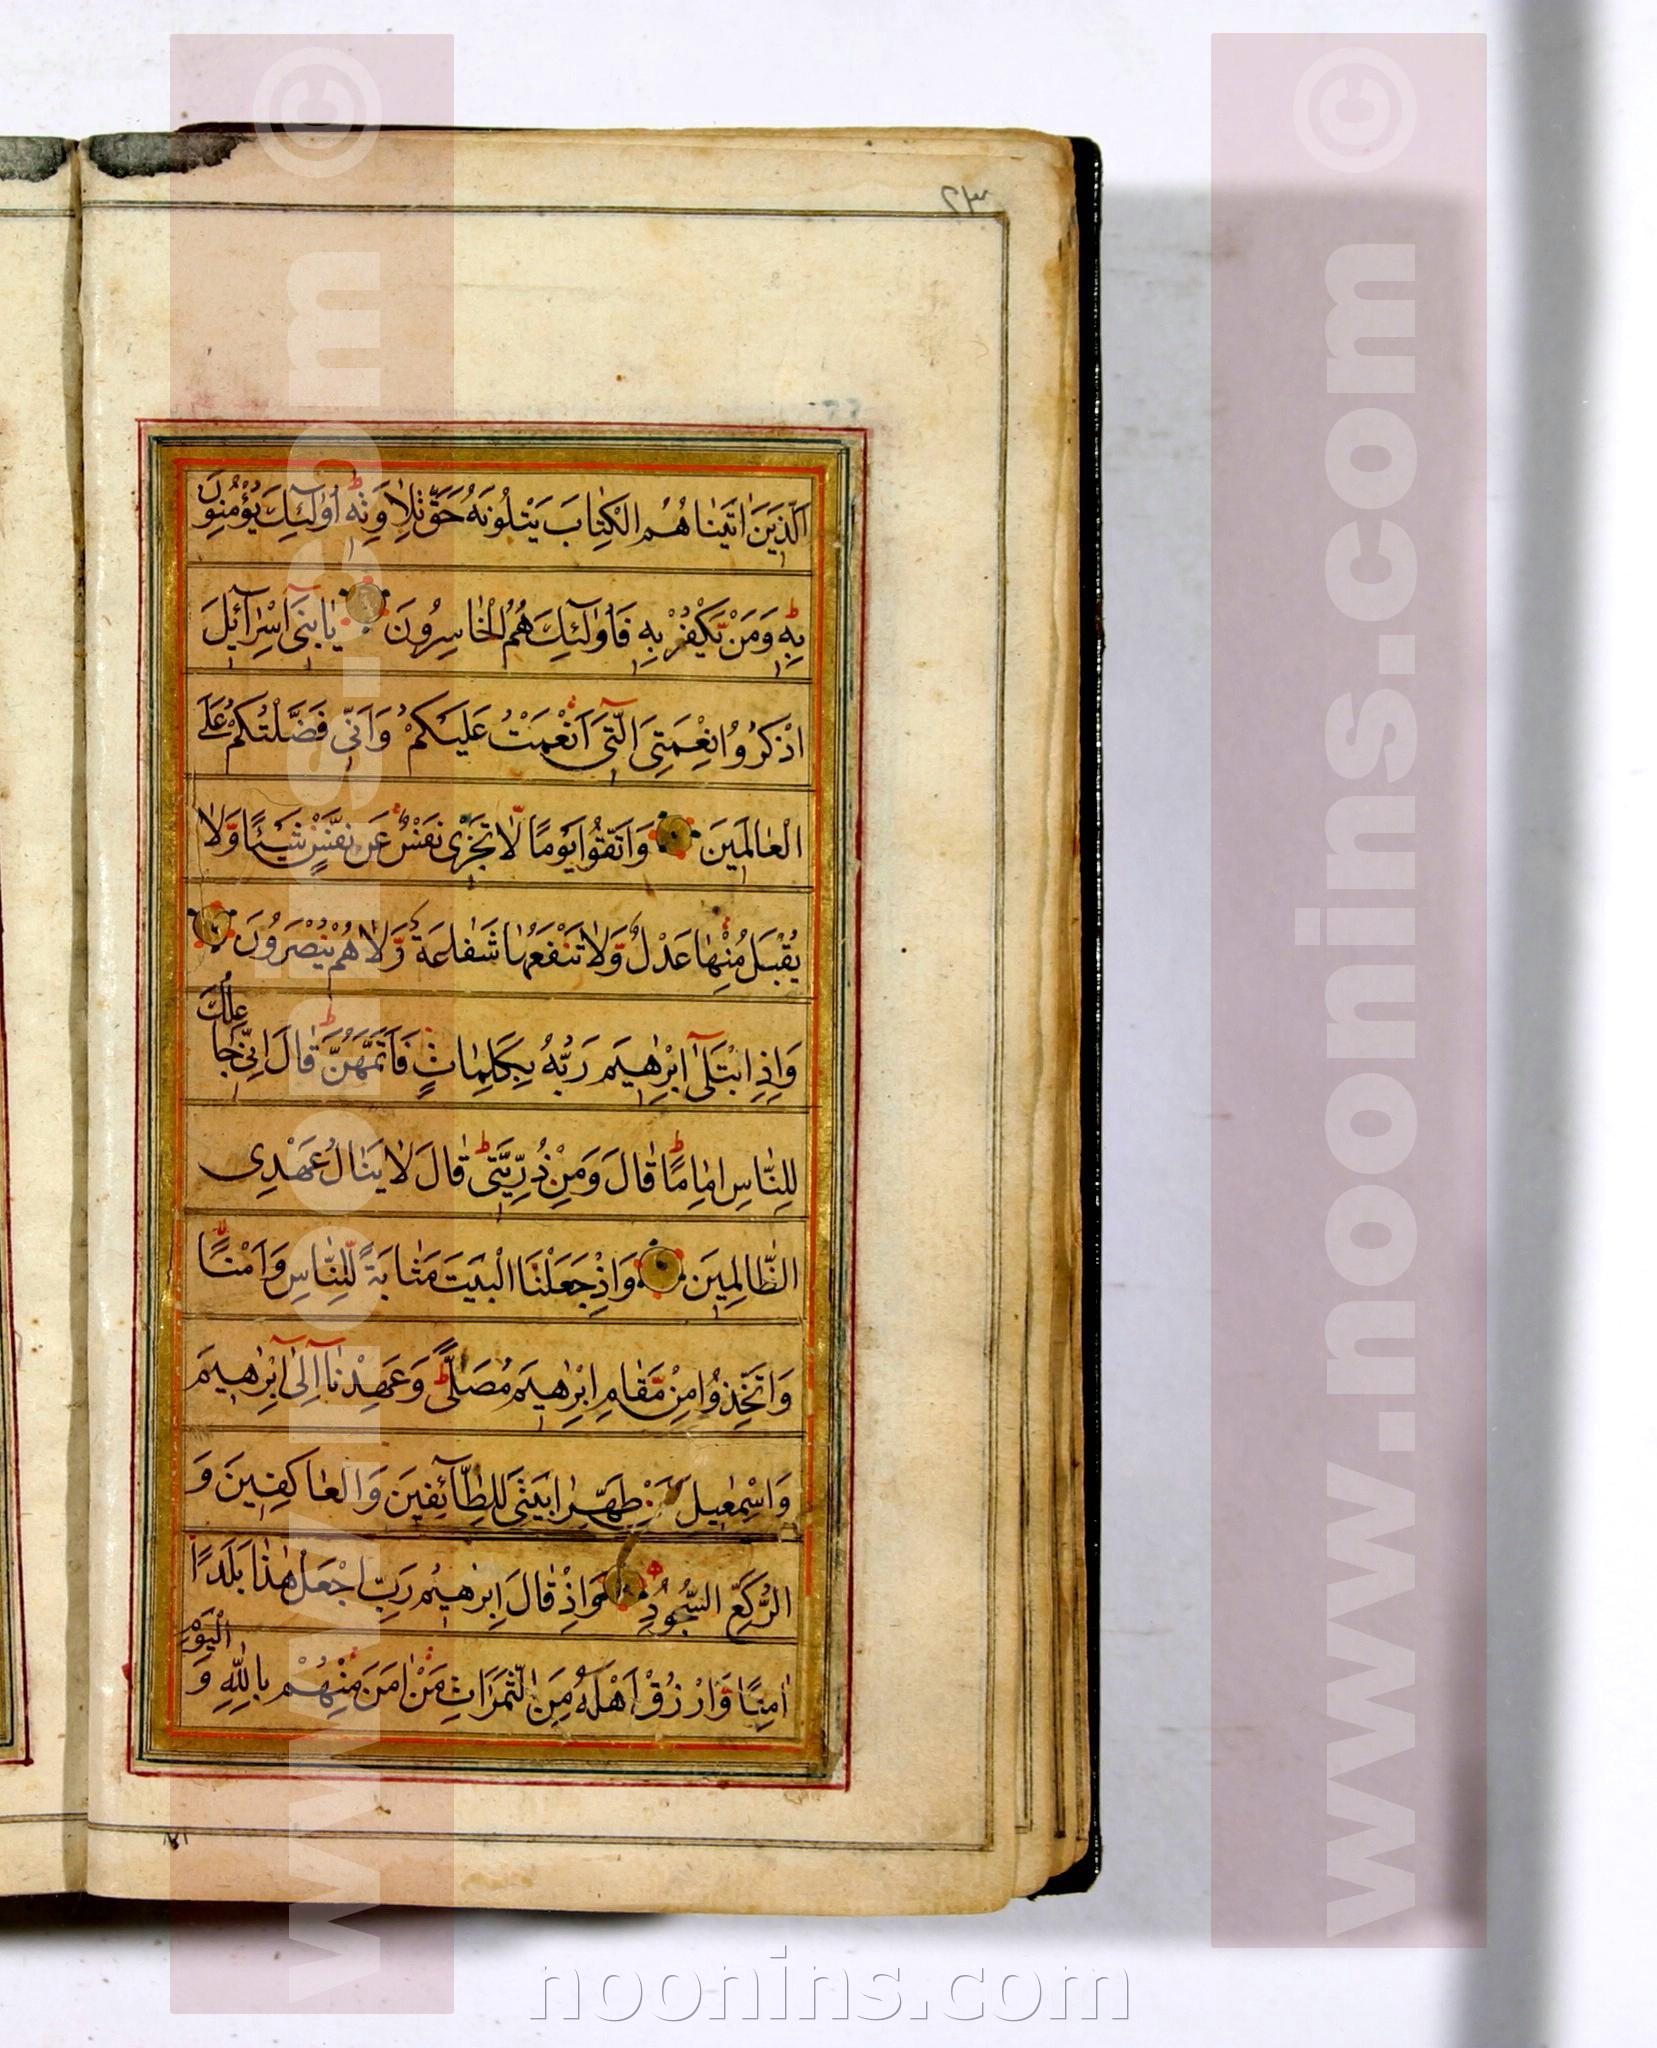 اَلَّذٖينَ اٰتَيْنَاهُمُ الْكِتَابَ يَتْلُونَهُ حَقَّ تِلَاوَتِهٖ اُولٰٓئِكَ يُؤْمِنُونَ
بِهٖ وَمَنْ يَكْفُرْ بِهٖ فَاُولٰٓئِكَ هُمُ الْخَاسِرُونَ يَابَنٖٓى اِسْرَآئٖلَ
اذْكُرُوا نِعْمَتِىَ الَّتٖٓى اَنْعَمْتُ عَلَيْكُمْ وَاَنّٖى فَضَّلْتُكُمْ عَلَى
الْعَالَمٖينَ وَاتَّقُوا يَوْمًا لَا تَجْزٖى نَفْسٌ عَنْ نَفْسٍ شَيْئًا وَلَا
يُقْبَلُ مِنْهَا عَدْلٌ وَلَا تَنْفَعُهَا شَفَاعَةٌ وَلَا هُمْ يُنْصَرُونَ
وَاِذِ ابْتَلٰٓى اِبْرٰهٖيمَ رَبُّهُ بِكَلِمَاتٍ فَاَتَمَّهُنَّ قَالَ اِنّٖى جَاعِلُكَ
لِلنَّاسِ اِمَامًا قَالَ وَمِنْ ذُرِّيَّتٖى قَالَ لَا يَنَالُ عَهْدِى
الظَّالِمٖينَ وَاِذْ جَعَلْنَا الْبَيْتَ مَثَابَةً لِلنَّاسِ وَاَمْنًا
وَاتَّخِذُوا مِنْ مَقَامِ اِبْرٰهٖيمَ مُصَلًّى وَعَهِدْنَآ اِلٰٓى اِبْرٰهٖيمَ
وَاِسْمٰعٖيلَ طَهِّرَا بَيْتِىَ لِلطَّآئِفٖينَ وَالْعَاكِفٖينَ وَ
الرُّكَّعِ السُّجُودِ وَاِذْ قَالَ اِبْرٰهٖيمُ رَبِّ اجْعَلْ هٰذَا بَلَدًا
اٰمِنًا وَارْزُقْ اَهْلَهُ مِنَ الثَّمَرَاتِ مَنْ اٰمَنَ مِنْهُمْ بِاللّٰهِ وَ الْيَوْمِ
www.noonins.com ©
www.noonins.com ©
noonins.com